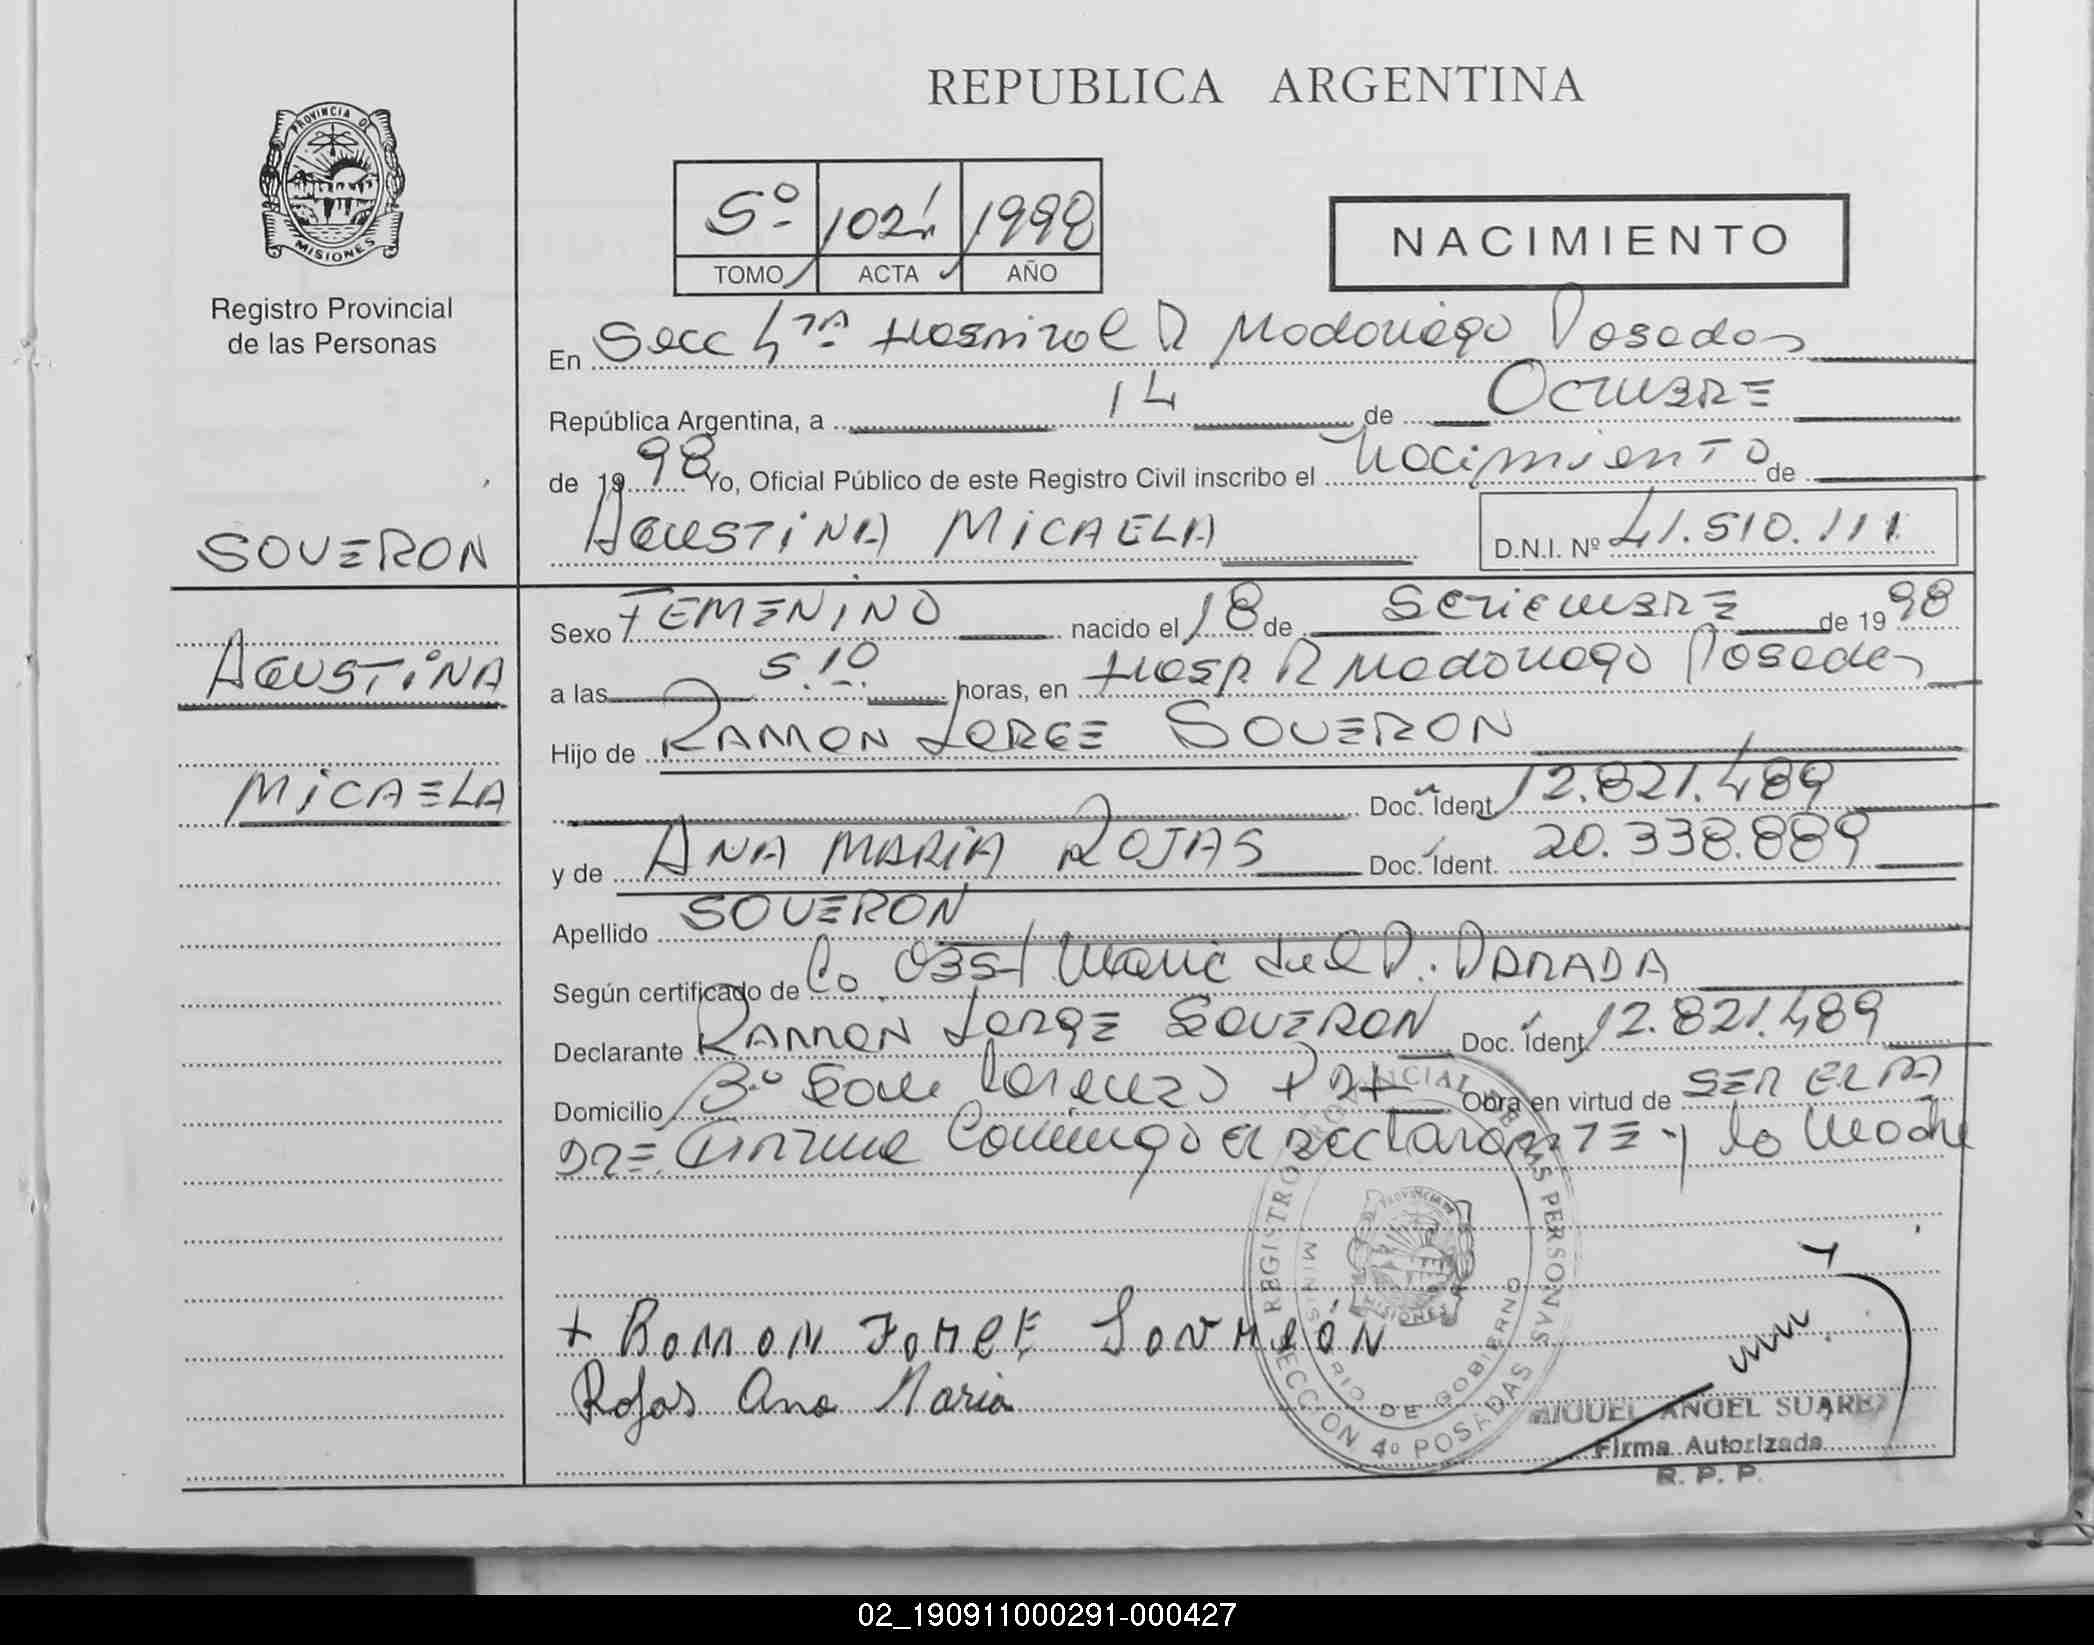 REPUBLICA ARGENTINA
PROVINCIA DE
MISIONES
Registro Provincial
de las Personas
5º 1024 1998
TOMO ACTA AÑO
NACIMIENTO
En Secc 4ta Hospital R Madariaga Posadas
República Argentina, a 14 de OCTUBRE
de 1998 Yo, Oficial Público de este Registro Civil inscribo el Nacimiento de
SOVERON
AGUSTINA MICAELA D.N.I. Nº 41.510.111
Sexo FEMENINO nacido el 18 de SETIEMBRE de 1998
AGUSTINA
a las 5.10. horas, en Hosp. R Madariaga Posadas
Hijo de RAMON JORGE SOVERON
MICAELA
Doc. Ident. 12.821.489
y de ANA MARIA ROJAS Doc. Ident. 20.338.889
Apellido SOVERON
Según certificado de Obst Maria del P. PARADA
Declarante RAMON JORGE SOVERON Doc. Ident. 12.821.489
Domicilio Bº San Lorenzo Obra en virtud de SER EL PA
DRE. Firma Conmigo el declarante y la Madre
+ Ramon Jorge Soverón
Rojas Ana Maria
REGISTRO PROVINCIAL DE LAS PERSONAS
SECCION 4º POSADAS
MINISTERIO DE GOBIERNO
PROVINCIA DE
MISIONES
MIGUEL ANGEL SUAREZ
Firma Autorizada
R. P. P.
02_190911000291-000427